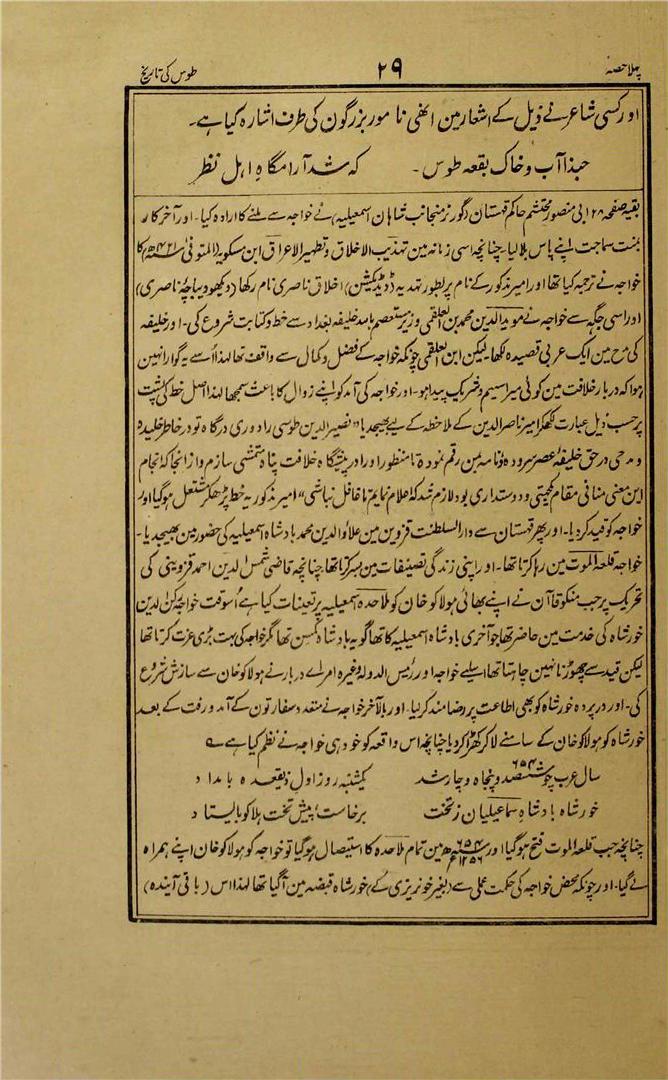 پہلا حصہ ۲۹ طوس کی تاریخ
اور کسی شاعر نے ذیل کے اشعار مین انھی نامور بزرگون کی طرف اشارہ کیا ہے۔
حبذا آب و خاک بقعہ طوس۔ کہ شد آرامگاہ اہل نظر
بقیہ صفحہ ۲۸ ابی منصور محتشم حاکم قہستان (گورنر منجانب شاہان اسمعیلیہ) نے خواجہ سے ملنے کا ارادہ کیا۔ اور آخر کار
بمنت سماجت اپنے پاس بلا لیا۔ چنانچہ اسی زمانہ مین تہذیب الاخلاق و تطہیر الاعراق ابن مسکویہ (المتوفی ۴۲۱ھ) کا
خواجہ نے ترجمہ کیا تھا اور امیر مذکور کے نام پر بطور تہدیہ (ڈیڈیکیشن) اخلاق ناصری نام رکھا (دیکھو دیباچہ ناصری)
اور اسی جگہ سے خواجہ نے موید الدین محمد بن العلقمی وزیر مستعصم باللہ خلیفہ بغداد سے خط و کتابت شروع کی۔ اور خلیفہ
کی مدح مین ایک عربی قصیدہ لکھا۔ لیکن ابن العلقمی چونکہ خواجہ کے فضل و کمال سے واقف تھا لہذا اُسے یہ گوارا نہین
ہوا کہ دربار خلافت مین کوئی میرا سہیم و شریک پیدا ہو۔ اور خواجہ کی آمد کو اپنے زوال کا باعث سمجھا لہذا اصل خط کی پشت
پر حسب ذیل عبارت لکھکر امیر ناصر الدین کے ملاحظہ کے لیے بھیجدیا "نصیر الدین طوسی را دوری درگاہ تو در خاطر خلیدہ
و مدحی در حق خلیفہ عصر سرودہ و نامہ بمن رقم نمودہ تا منظور او را در پیشگاہ خلافت پناہ متمشی سازم و از انجا کہ انجام
این معنی منافی مقام یکجہتی و دوستداری بود لازم شد کہ اعلام نمایم تا غافل نباشی" امیر مذکور یہ خط پڑھکر مشتعل ہوگیا اور
خواجہ کو قید کردیا۔ اور پھر قہستان سے دار السلطنت قزوین مین علاؤالدین محمد بادشاہ اسمعیلیہ کی حضور مین بھیجدیا۔
خواجہ قلعہ الموت مین رہا کرتا تھا۔ اور اپنی زندگی تصنیفات مین بسر کرتا تھا چنانچہ قاضی شمس الدین احمد قزوینی کی
تحریک پر جب منکو قاآن نے اپنے بھائی ہولاکو خان کو ملاحدہ اسمعیلیہ پر تعینات کیا ہے اُسوقت خواجہ رکن الدین
خورشاہ کی خدمت مین حاضر تھا جو آخری بادشاہ اسمعیلیہ کا تھا گو یہ بادشاہ کمسن تھا مگر خواجہ کی بہت بڑی عزت کرتا تھا
لیکن قید سے چھوڑنا نہین چاہتا تھا اسلیے خواجہ اور رئیس الدولہ وغیرہ امراے دربار نے ہولاکو خان سے سازش شروع
کی۔ اور در پردہ خورشاہ کو بھی اطاعت پر رضامند کرلیا۔ اور بالآخر خواجہ نے متعدد سفارتون کے آمد و رفت کے بعد
خورشاہ کو ہولاکو خان کے سامنے لاکر کھڑا کردیا چنانچہ اس واقعہ کو خود ہی خواجہ نے نظم کیا ہے
سال عرب چو ششصد و پنجاہ و چار شد ۶۵۴ یکشنبہ روز اول ذیقعدہ بامداد
خورشاہ بادشاہ سماعیلیان ز تخت برخاست، پیش تخت ہلاکو بایستاد
چنانچہ جب قلعہ الموت فتح ہوگیا اور ۶۵۴ھ ۱۲۵۶ع مین تمام ملاحدہ کا استیصال ہوگیا تو خواجہ کو ہولاکو خان اپنے ہمراہ
لے گیا۔ اور چونکہ محض خواجہ کی حکمت عملی سے (بغیر خونریزی کے) خورشاہ قبضہ مین آگیا تھا لہذا اس (باقی آیندہ)